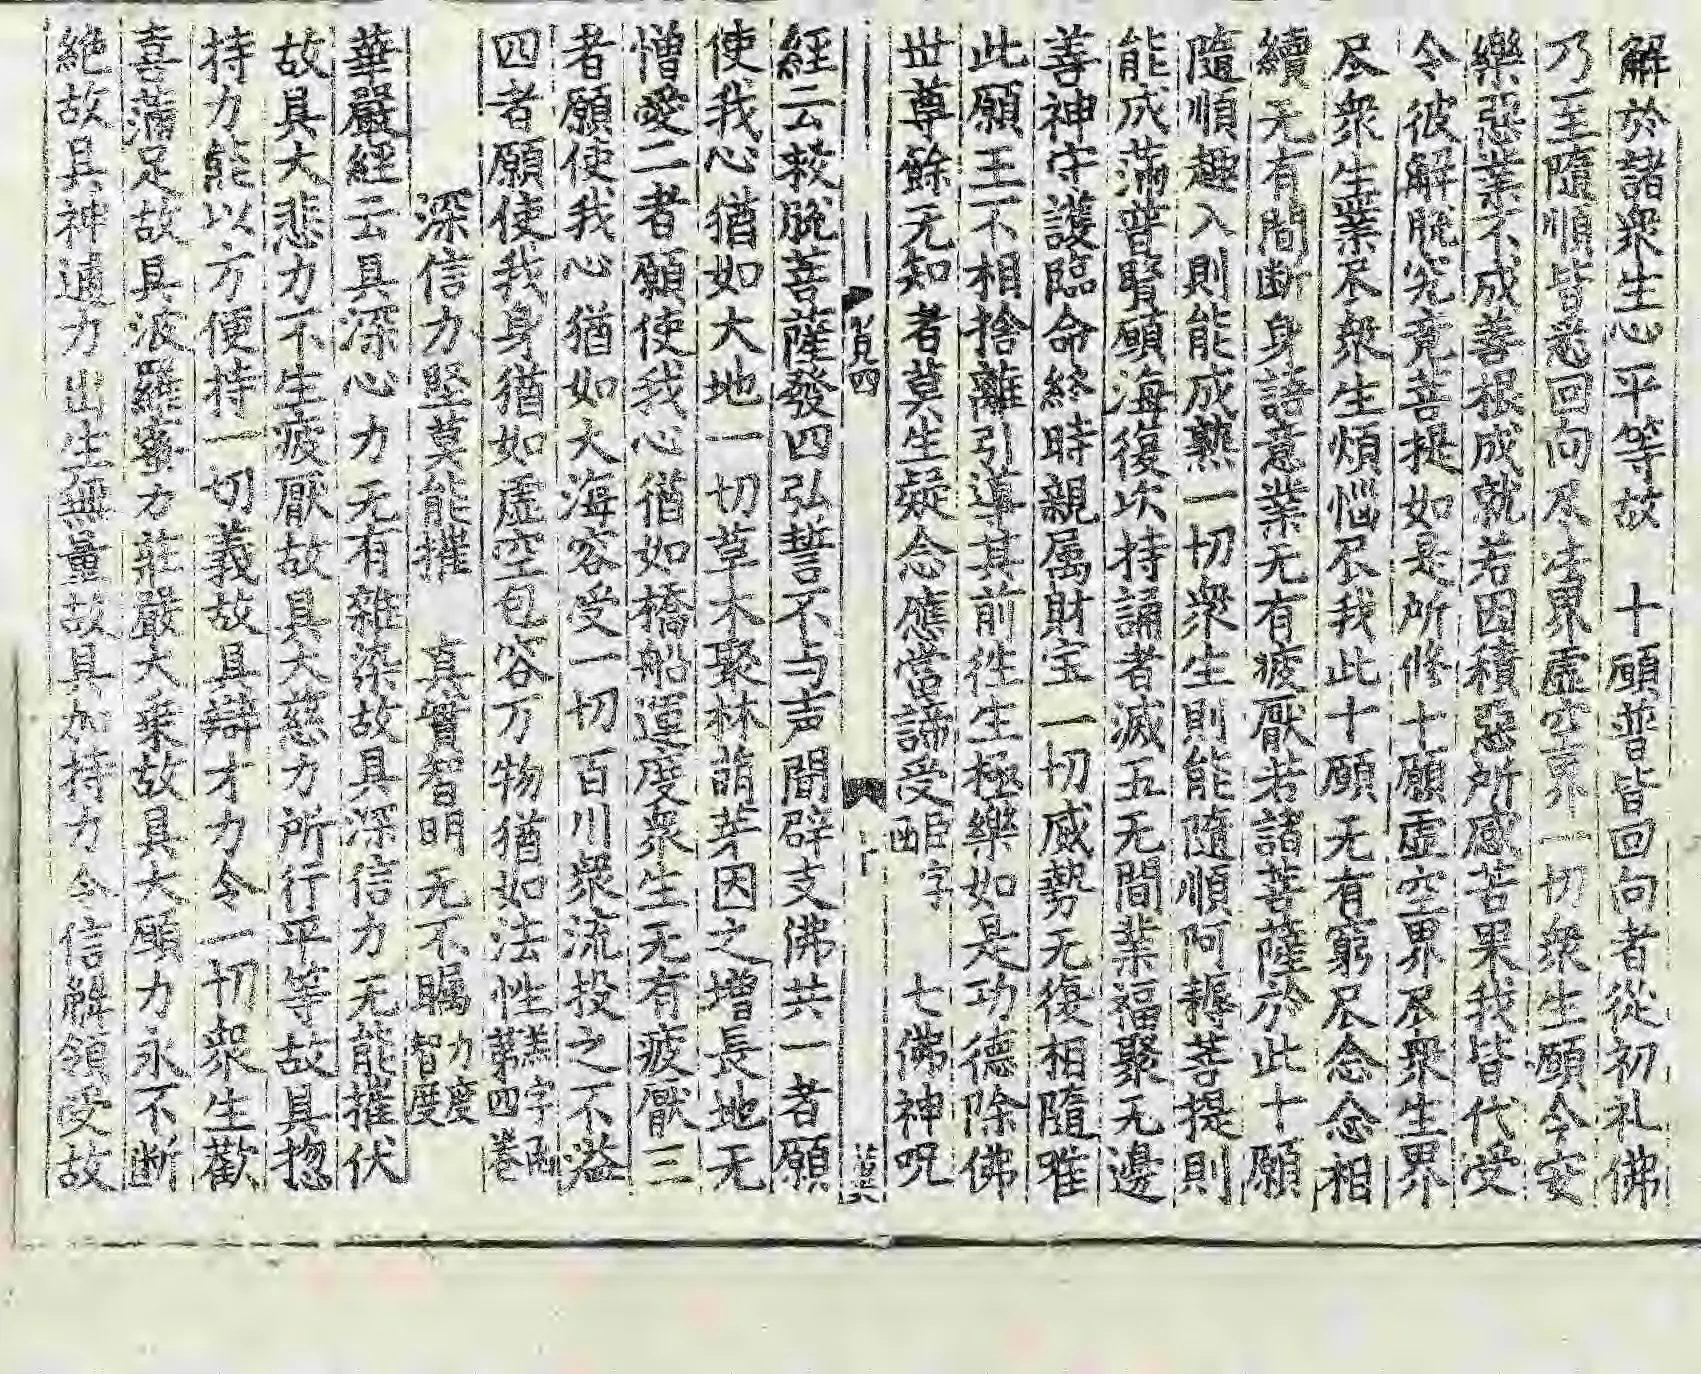 解於諸衆生心平等故　十願普皆回向者從初礼佛
乃至隨順皆悉回向尽法界虚空界一切衆生願令安
樂惡業不成善根成就若因積惡所感苦果我皆代受
令彼解脫究竟菩提如是所修十願虚空界尽衆生界
尽衆生業尽衆生煩惱尽我此十願无有窮尽念念相
續无有間断身語意業无有疲厭若諸菩薩於此十願
隨順趣入則能成熟一切衆生則能隨順阿耨菩提則
能成滿普賢願海復次持誦者滅五无間業福聚无邊
善神守護臨命終時親屬財宝一切威勢无復相隨唯
此願王不相捨離引導其前往生極樂如是功德除佛
世尊餘无知者莫生疑念應當諦受臣字函　七佛神呪
經云救脫菩薩發四弘誓不与声聞辟支佛共一者願
使我心猶如大地一切草木聚林萌芽因之增長地无
憎愛二者願使我心猶如橋船運度衆生无有疲厭三
者願使我心猶如大海容受一切百川衆流投之不溢
四者願使我身猶如虛空包容万物猶如法性羔字函第四卷
深信力堅莫能摧　真實智明无不矚力度智度
華嚴經云具深心力无有雜染故具深信力无能摧伏
故具大悲力不生疲厭故具大慈力所行平等故具揔
持力能以方便持一切義故具辯才力令一切衆生歡
喜滿足故具波羅蜜力莊嚴大乗故具大願力永不断
絶故具神通力出生無量故具加持力令信解領受故